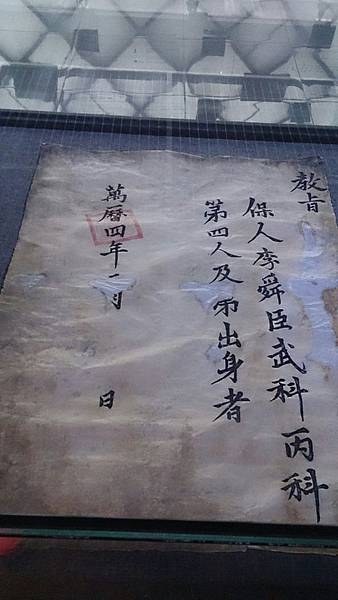 教旨
保人李舜臣武科丙科
第四人及第出身者
萬曆四年二月 日